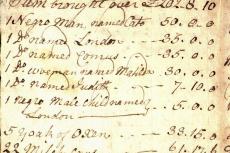 Sum brought over £ 202.8.10
1 Negro Man named Cato 50.0.0
1 Do named London 35.0.0
1 Do named Comus 35.0.0
1 Do woman named 30.0.0
1 Do named Judith 7.10.0
1 Negro Male Child named
London 5.0.0
5 Yoak of Oxen 33.15.0